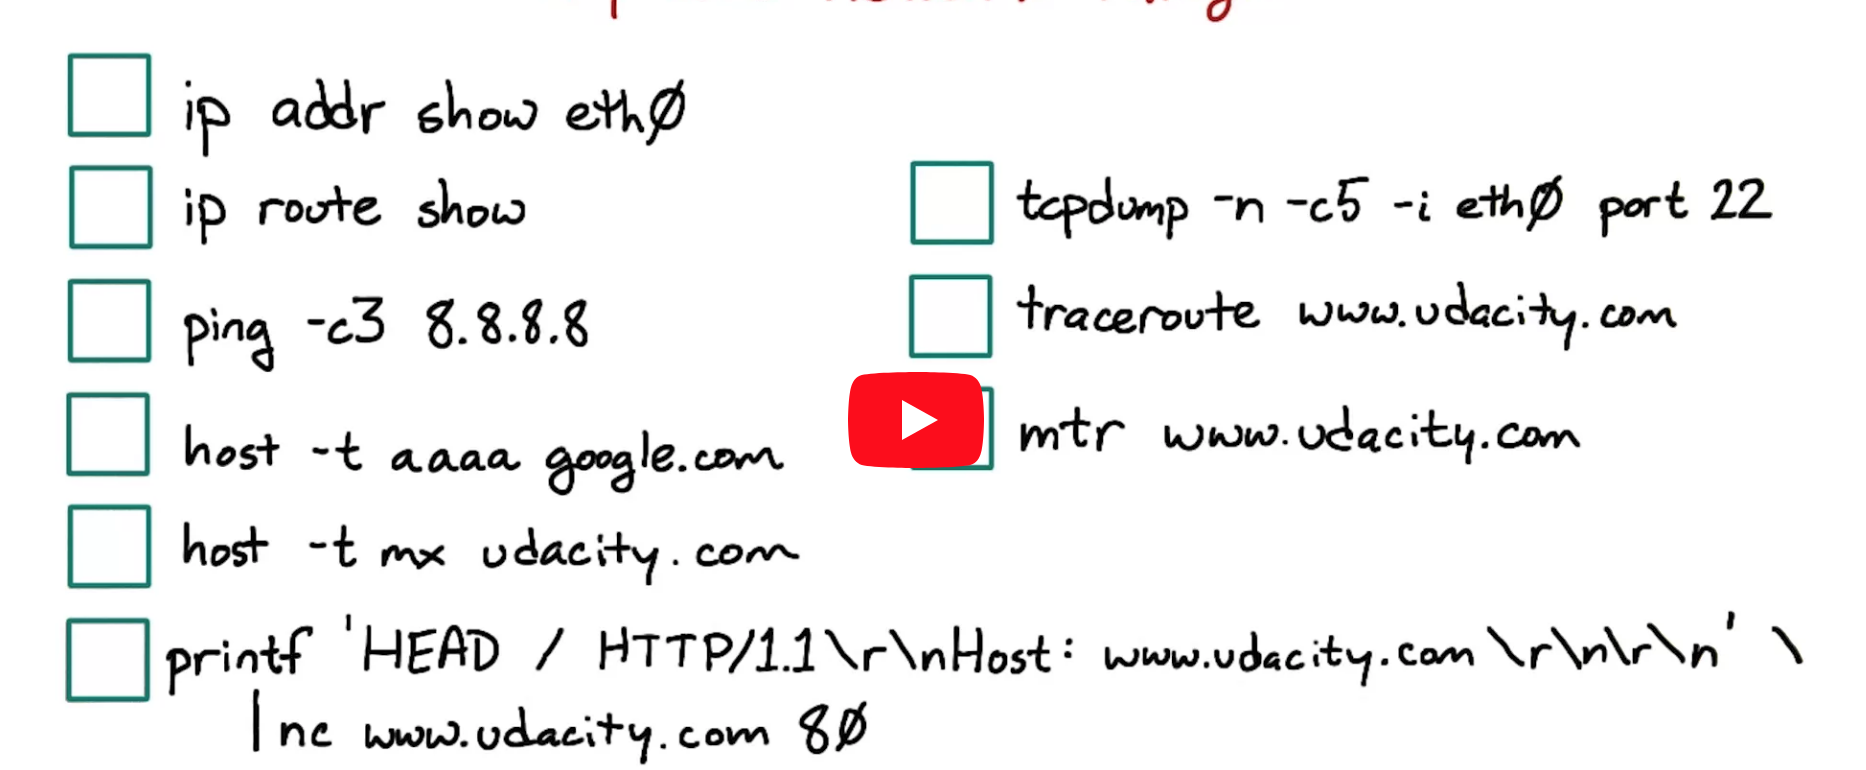 ip addr show eth0
ip route show
ping -c3 8.8.8.8
host -t aaaa google.com
host -t mx udacity.com
printf 'HEAD / HTTP/1.1\r\nHost: www.udacity.com\r\n\r\n' \
| nc www.udacity.com 80
tcpdump -n -c5 -i eth0 port 22
traceroute www.udacity.com
mtr www.udacity.com